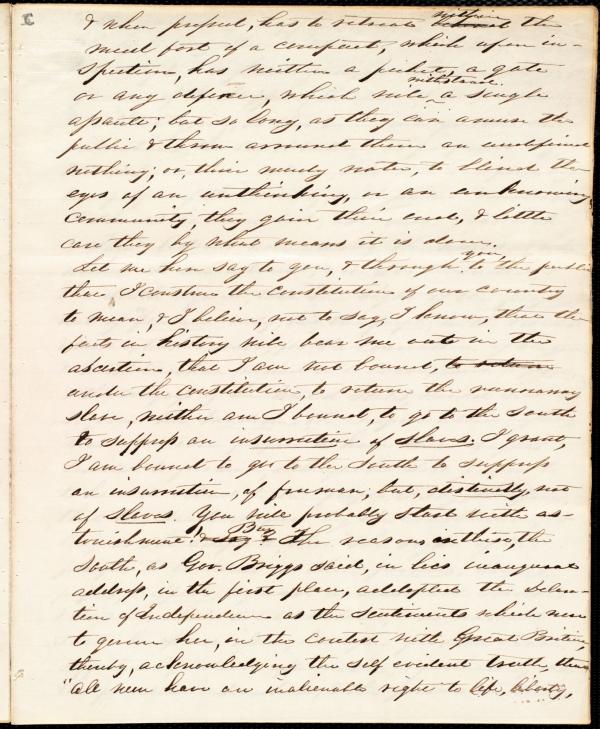 & when pressed, has to retreat within the
mud fort of a compact, which upon in-
spection, has neither a picket, a gate
or any defence, which will withstand a single
assault; but so long, as they can amuse the
public & throw around them an undefined
nothing; or, thin muddy water, to blind the
eyes of an unthinking, or an unknowing
community, they gain their end, & little
care they by what means it is done.
Let me here say to you, & through you, to the public
that I construe the constitution of our country
to mean, & I believe, not to say, I know, that the
facts in history will bear me out in the
assertion, that I am not bound, to return
under the constitution, to return the runaway
slave, neither am I bound, to go to the South
to suppress an insurrection of slaves. I grant,
I am bound to go to the South to suppress
an insurrection, of freemen; but, distinctly, not
of slaves. You will probably start with as-
tonishment & say? But The reason is this, the
South, as Gov. Briggs said, in his inaugural
address, in the first place, addopted the Declara-
tion of Independence as the sentiments which were
to govern her, in the contest with Great Britain,
thereby, acknowledging the self evident truth, that
"all men have an inalienable right to life, liberty,